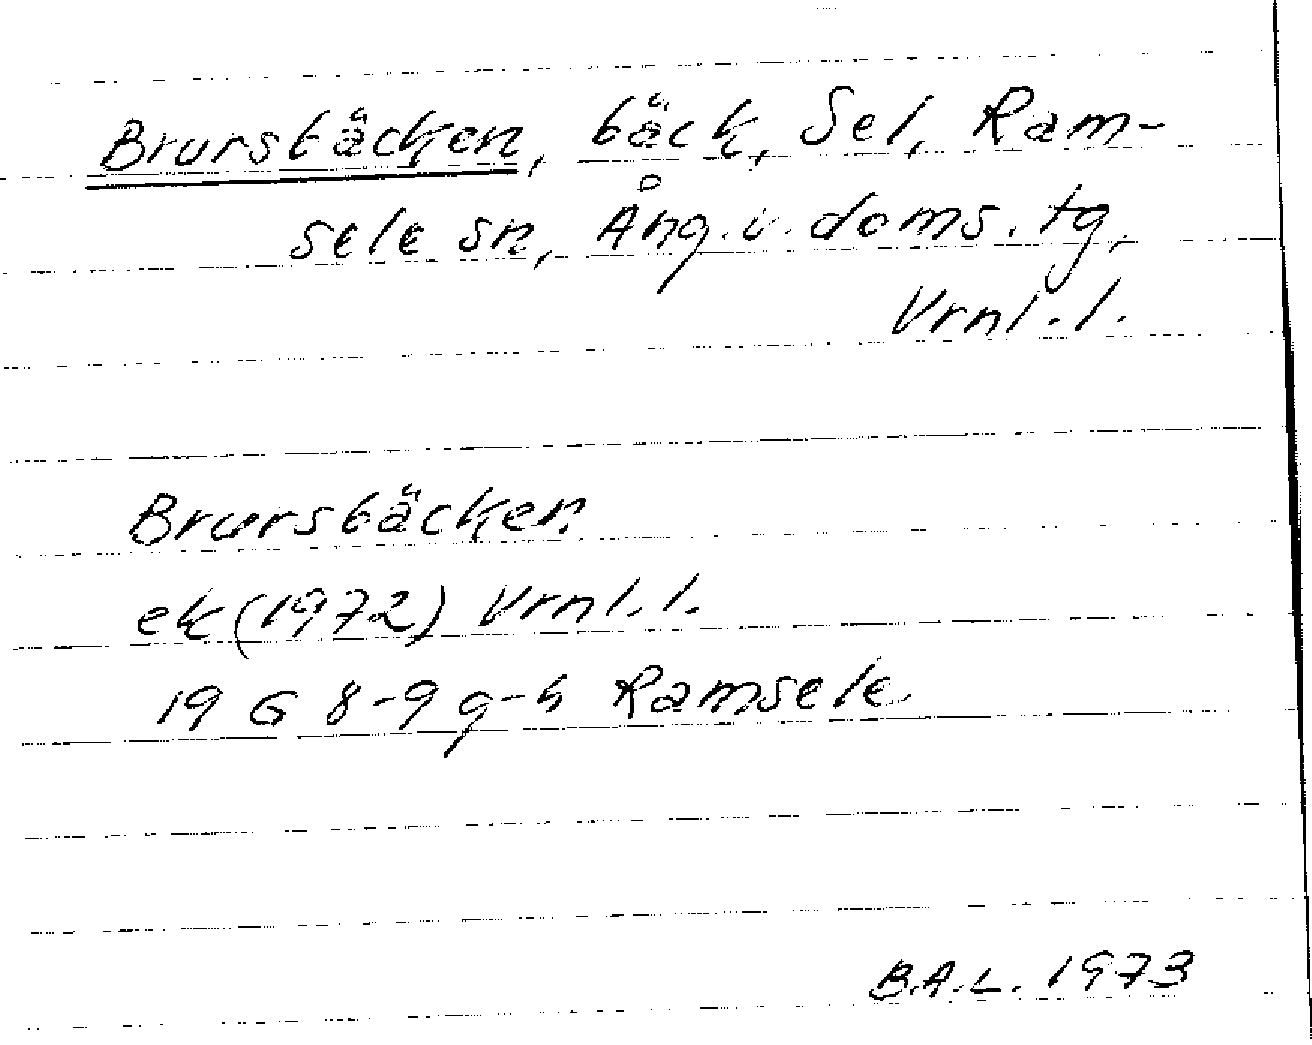 Brursbäcken, bäck, Sel, Ram-
sele sn, Ång.v.doms.tg,
Vrnl.l.
Brursbäcken
ek (1972) Vrnl.l.
19 G 8-9 g-h Ramsele
B.A.L. 1973